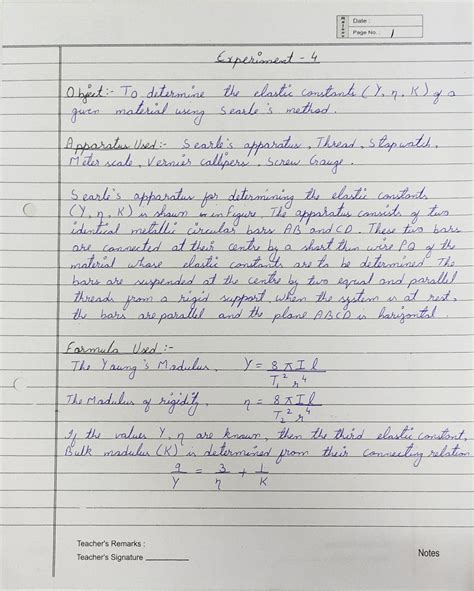 Date :
Page No. : 1
Experiment - 4
Object:- To determine the elastic constants (Y, η, K) of a
given material using Searle's method.
Apparatus Used:- Searle's apparatus, Thread, Stopwatch,
Meter scale, Vernier callipers, Screw Gauge.
Searle's apparatus for determining the elastic constants
(Y, η, K) is shown in figure. The apparatus consists of two
identical metallic circular bars AB and CD. These two bars
are connected at their centre by a short thin wire PQ of the
material whose elastic constants are to be determined. The
bars are suspended at the centre by two equal and parallel
threads from a rigid support, when the system is at rest,
the bars are parallel and the plane ABCD is horizontal.
Formula Used :-
The Young's Modulus, Y = 8πIl / T₁² r⁴
The Modulus of rigidity, η = 8πIl / T₂² r⁴
If the values Y, η are known, then the third elastic constant,
Bulk modulus (K) is determined from their connecting relation
9/Y = 3/η + 1/K
Teacher's Remarks :
Teacher's Signature
Notes